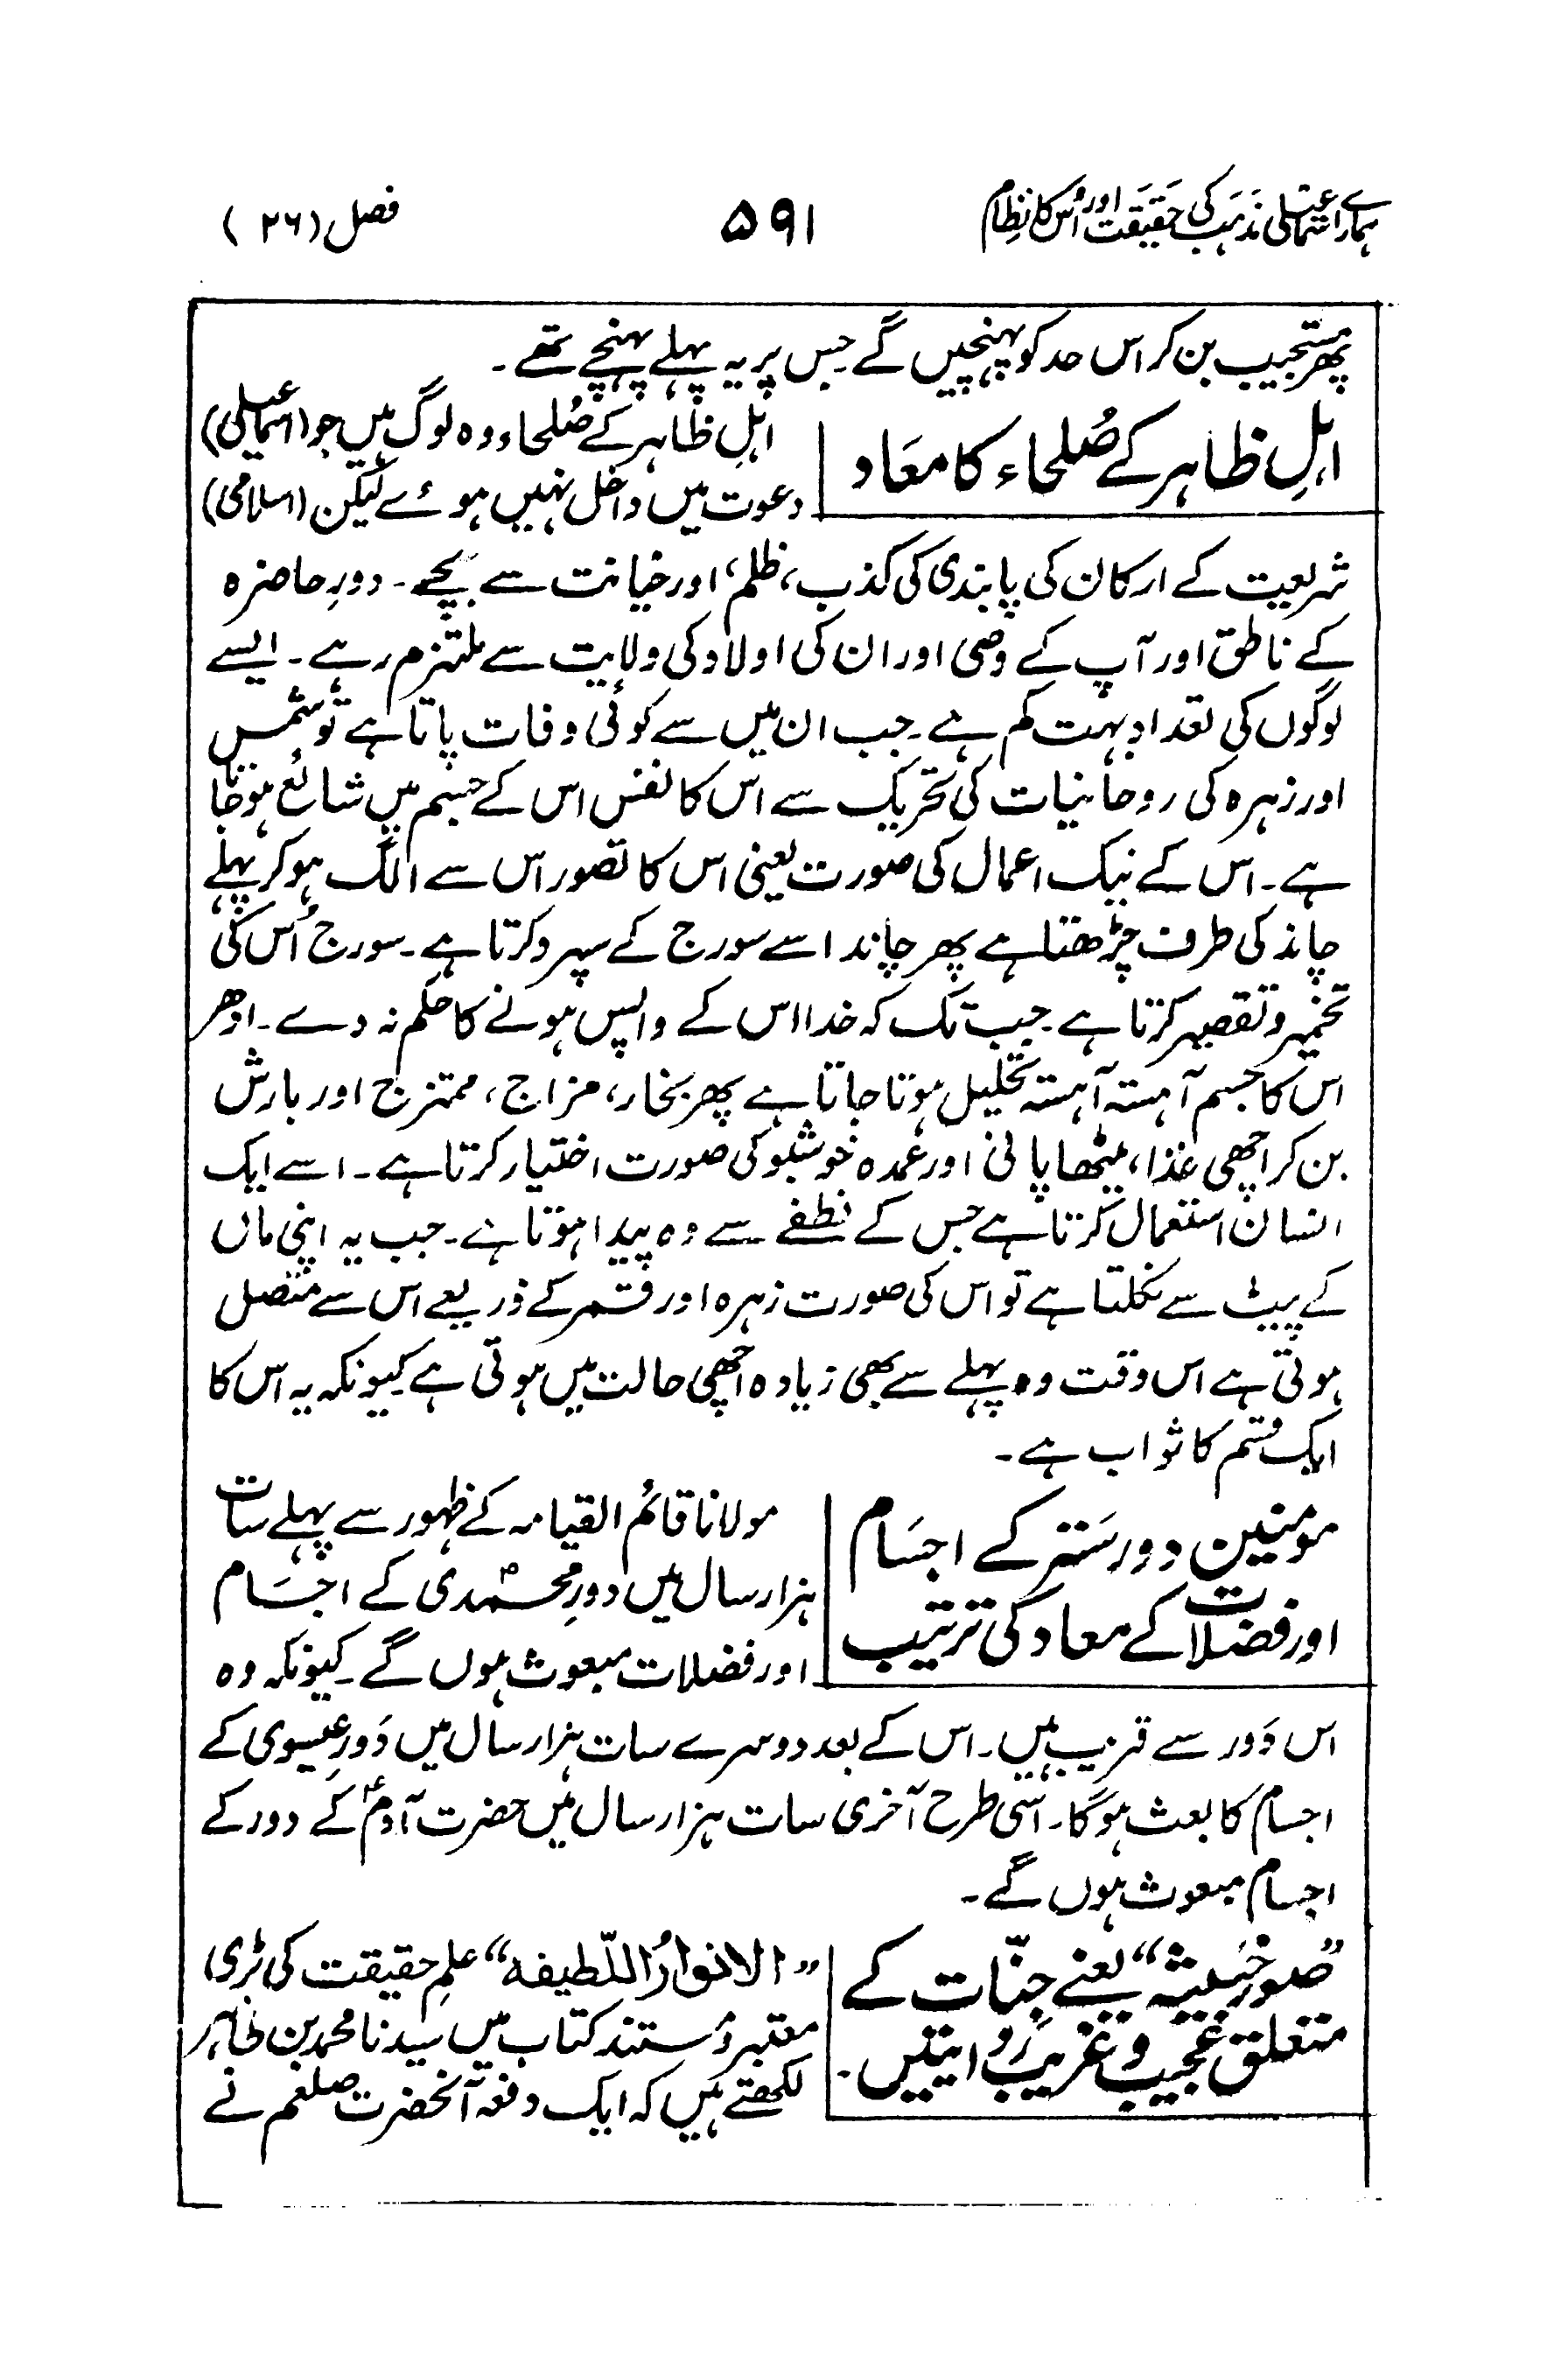 ہمارے اسماعیلی مذہب کی حقیقت اور اُس کا نظام
۵۹۱
فصل (۲۶)
پھر مستجیب بن کر اس حد کو پہنچیں گے جس پر یہ پہلے پہنچے تھے۔
اہلِ ظاہر کے صُلحاء کا معَاد
اہلِ ظاہر کے صُلحاء وہ لوگ ہیں جو (اسماعیلی)
دعوت میں داخل نہیں ہوئے لیکن (اسلامی)
شریعت کے ارکان کی پابندی کی کذب، ظلم، اور خیانت سے بچے۔ دورِ حاضرہ
کے ناطق اور آپ کے وصی اور ان کی اولاد کی ولایت سے ملتزم رہے۔ ایسے
لوگوں کی تعداد بہت کم ہے۔ جب ان میں سے کوئی وفات پاتا ہے تو شمس
اور زہرہ کی روحانیات کی تحریک سے اس کا نفس اس کے جسم میں شائع ہو جاتا
ہے۔ اس کے نیک اعمال کی صورت یعنی اس کا تصور اس سے الگ ہو کر پہلے
چاند کی طرف چڑھتا ہے پھر چاند اسے سورج کے سپرد کرتا ہے۔ سورج اُس کی
تخمیر و تقصیر کرتا ہے۔ جب تک کہ خدا اس کے واپس ہونے کا حکم نہ دے۔ ادھر
اس کا جسم آہستہ آہستہ تحلیل ہوتا جاتا ہے پھر بخار، مزاج، ممتزج اور بارش
بن کر اچھی غذا، میٹھا پانی اور عمدہ خوشبو کی صورت اختیار کرتا ہے۔ اسے ایک
انسان استعمال کرتا ہے جس کے نطفے سے وہ پیدا ہوتا ہے۔ جب یہ اپنی ماں
کے پیٹ سے نکلتا ہے تو اس کی صورت زہرہ اور قمر کے ذریعے اس سے متصل
ہوتی ہے اس وقت وہ پہلے سے بھی زیادہ اچھی حالت میں ہوتی ہے کیونکہ یہ اس کا
ایک قسم کا ثواب ہے۔
مومنین دور ستر کے اجسَام
اور فضلات کے معاد کی ترتیب
مولانا قائم القیامہ کے ظہور سے پہلے سات
ہزار سال میں دورِ محمدیؐ کے اجسَام
اور فضلات مبعوث ہوں گے۔ کیونکہ وہ
اس دَور سے قریب ہیں۔ اس کے بعد دوسرے سات ہزار سال میں دَورِ عیسوی کے
اجسام کا بعث ہوگا۔ اسی طرح آخری سات ہزار سال میں حضرت آدمؑ کے دور کے
اجسام مبعوث ہوں گے۔
”صور خبیثہ“ یعنے جنّات کے
متعلق عجیب و غریب روایتیں۔
”الانوارُ اللّطیفہ“ علمِ حقیقت کی بڑی
معتبر و مستند کتاب میں سیدنا محمد بن طاہر
لکھتے ہیں کہ ایک دفعہ آنحضرت صلعم نے